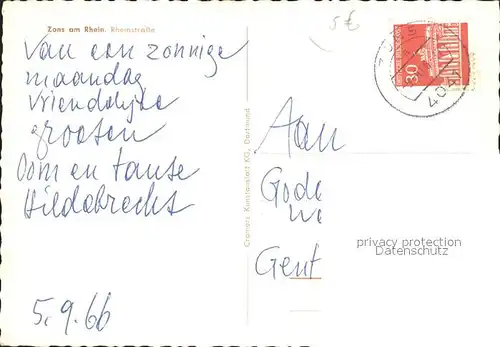 Zons am Rhein. Rheinstraße
5€
Van een zonnige
maandag
Vriendelijke
groeten
Oom en tante
Hildebrecht
5.9.66
Cramers Kunstanstalt KG, Dortmund
30
404
Aan
Gode
We
Gent
privacy protection
Datenschutz